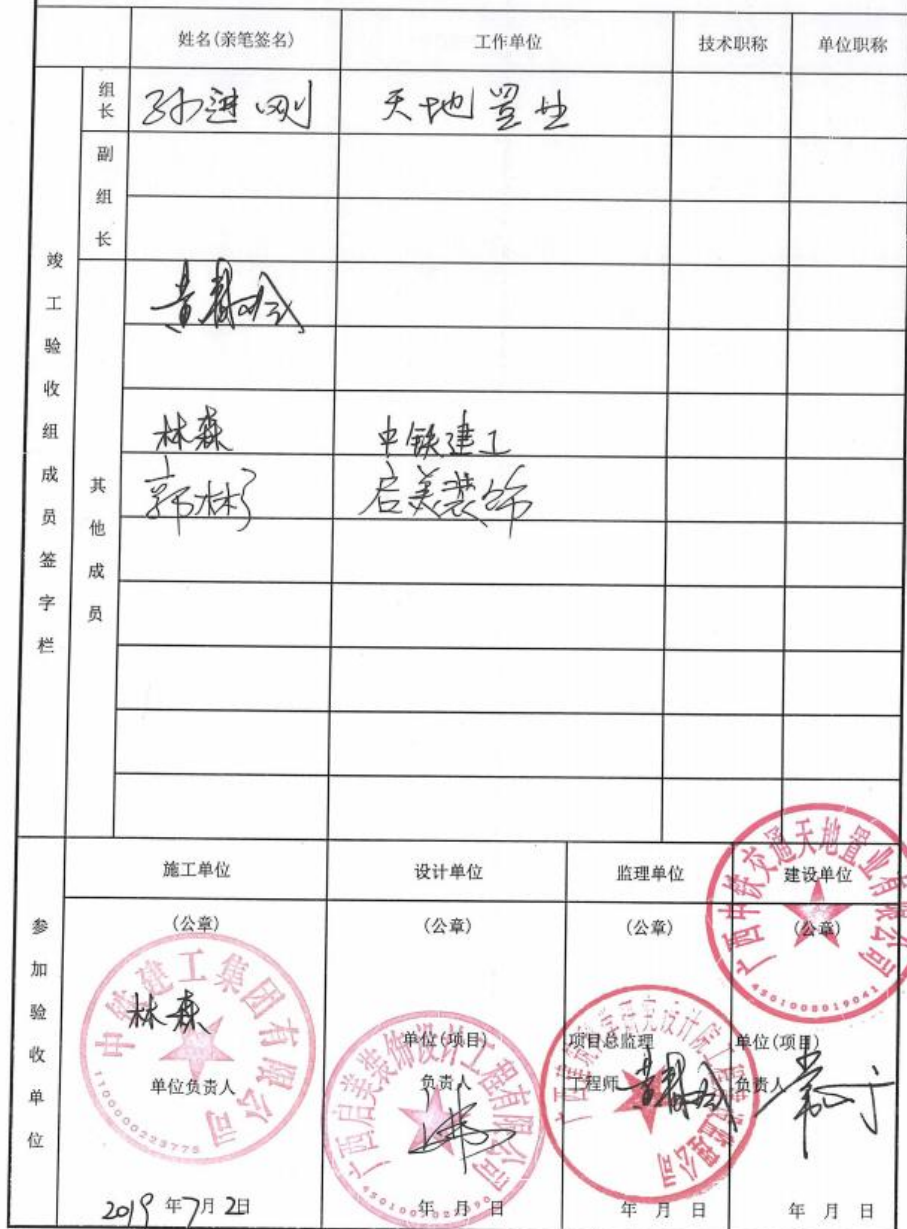 姓名(亲笔签名) 工作单位 技术职称 单位职称
竣工验收组成员签字栏
组长 孙进刚 天地置业
副组长
其他成员
林森 中铁建工
郭林 启美装饰
参加验收单位
施工单位 设计单位 监理单位 建设单位
(公章) (公章) (公章) (公章)
中铁建工集团有限公司
林森
单位负责人
1100000223775
2019年7月2日
广西启美装饰设计工程有限公司
单位(项目)
负责人
年 月 日
项目总监理
工程师
年 月 日
广西中铁交通天地置业有限公司
4501008019041
单位(项目)
负责人
年 月 日